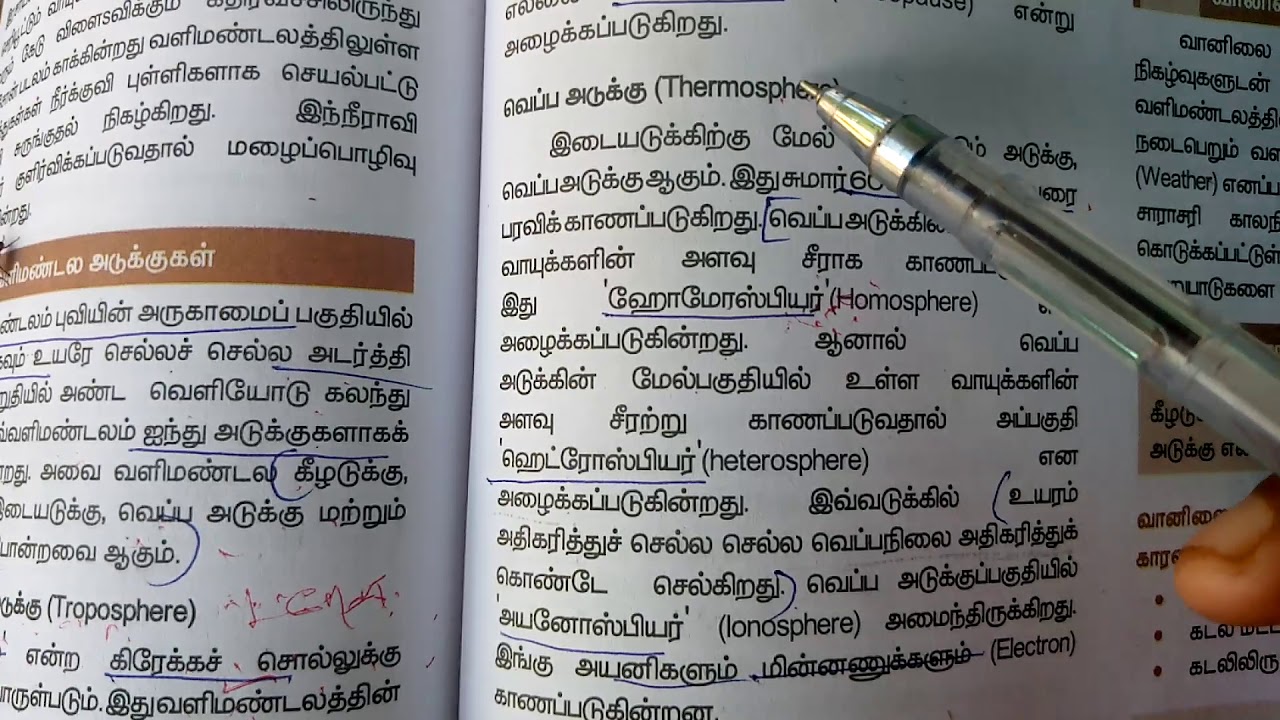 விளைவிக்கும்
காக்கின்றது வளிமண்டலத்திலுள்ள
நீர்க்குவி புள்ளிகளாக செயல்பட்டு
சுருங்குதல் நிகழ்கிறது. இந்நீராவி
குளிர்விக்கப்படுவதால் மழைப்பொழிவு
அடுக்குகள்
புவியின் அருகாமைப் பகுதியில்
உயரே செல்லச் செல்ல அடர்த்தி
அண்ட வெளியோடு கலந்து
ஐந்து அடுக்குகளாகக்
அவை வளிமண்டல கீழடுக்கு,
இடையடுக்கு, வெப்ப அடுக்கு மற்றும்
போன்றவை ஆகும்.
(Troposphere)
என்ற கிரேக்கச் சொல்லுக்கு
இதுவளிமண்டலத்தின்
என்று
அழைக்கப்படுகிறது.
வெப்ப அடுக்கு (Thermosphere)
இடையடுக்கிற்கு மேல் அடுக்கு,
வெப்பஅடுக்குஆகும். இதுசுமார்
பரவிக்காணப்படுகிறது. வெப்பஅடுக்கி
வாயுக்களின் அளவு சீராக
இது 'ஹோமோஸ்பியர்' (Homosphere)
அழைக்கப்படுகின்றது. ஆனால் வெப்ப
அடுக்கின் மேல்பகுதியில் உள்ள வாயுக்களின்
அளவு சீரற்று காணப்படுவதால் அப்பகுதி
'ஹெட்ரோஸ்பியர்' (heterosphere) என
அழைக்கப்படுகின்றது. இவ்வடுக்கில் உயரம்
அதிகரித்துச் செல்ல செல்ல வெப்பநிலை அதிகரித்துக்
கொண்டே செல்கிறது. வெப்ப அடுக்குப்பகுதியில்
'அயனோஸ்பியர்' (Ionosphere) அமைந்திருக்கிறது.
இங்கு அயனிகளும் மின்னணுக்களும் (Electron)
காணப்படுகின்றன.
வானிலை
நிகழ்வுகளுடன்
வளிமண்டலத்தி
நடைபெறும்
(Weather)
சாராசரி
கொடுக்கப்பட்டுள்
அடுக்கு